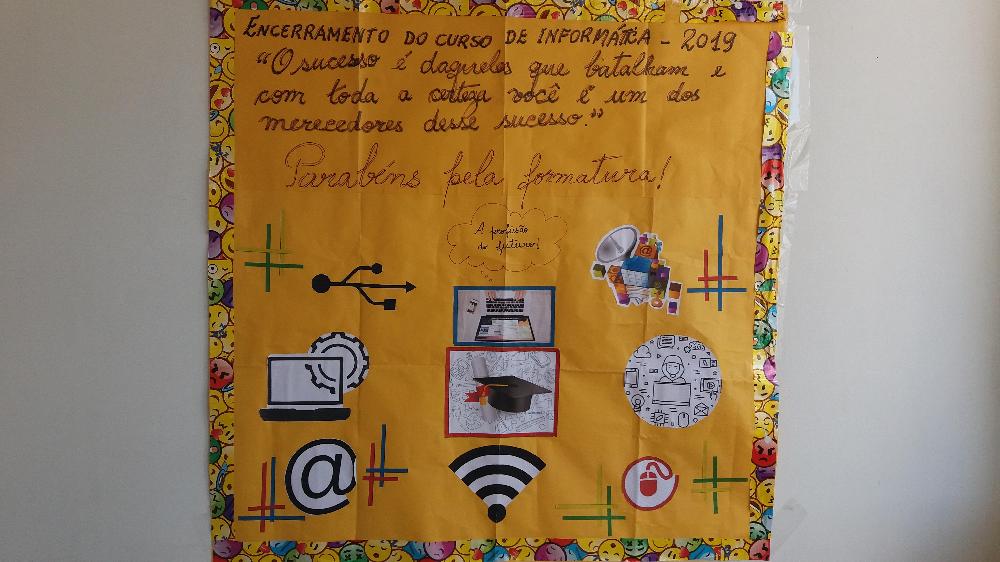 ENCERRAMENTO DO CURSO DE INFORMÁTICA - 2019
"O sucesso é daqueles que batalham e
com toda a certeza você é um dos
merecedores desse sucesso."
Parabéns pela formatura!
A profissão
do futuro!
@